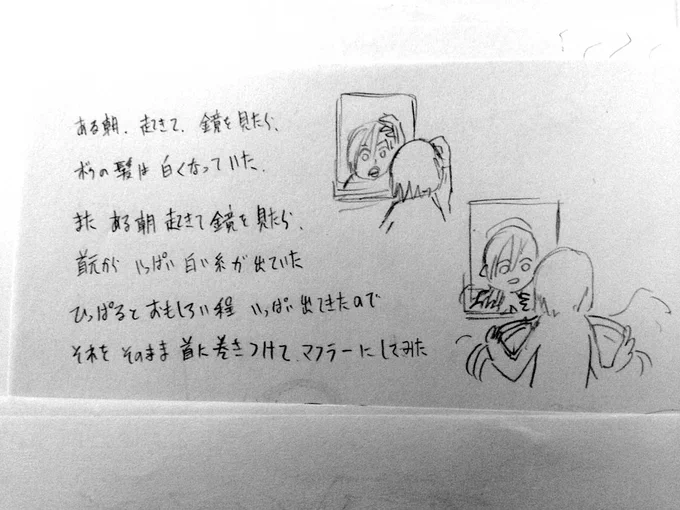 ある朝、起きて、鏡を見たら、
ボクの髪は白くなっていた、
また ある朝 起きて鏡を見たら、
首元から いっぱい 白い糸が出ていた
ひっぱると おもしろい程 いっぱい 出てきたので
それを そのまま 首に巻きつけて、マフラーにしてみた